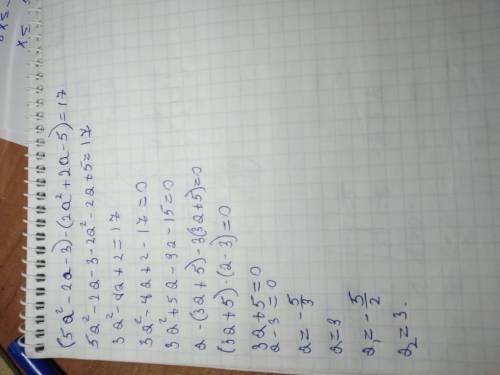 (5a² - 2a - 3) - (2a² + 2a - 5) = 17
5a² - 2a - 3 - 2a² - 2a + 5 = 17
3a² - 4a + 2 = 17
3a² - 4a + 2 - 17 = 0
3a² + 5a - 9a - 15 = 0
a · (3a + 5) - 3(3a + 5) = 0
(3a + 5) · (a - 3) = 0
3a + 5 = 0
a - 3 = 0
a = - 5/3
a = 3
a₁ = - 5/2
a₂ = 3.